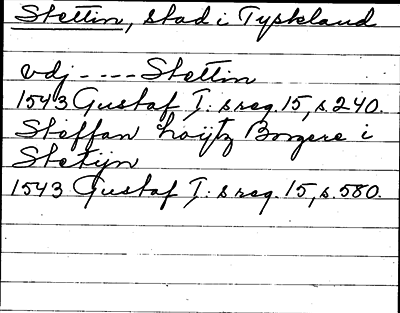 Stettin, stad i Tyskland
vdj - - - - Stettin
1543 Gustaf I: s reg. 15, s. 240.
Steffan Loÿtz Borgere i
Stetijn
1543 Gustaf I: s reg. 15, s. 580.